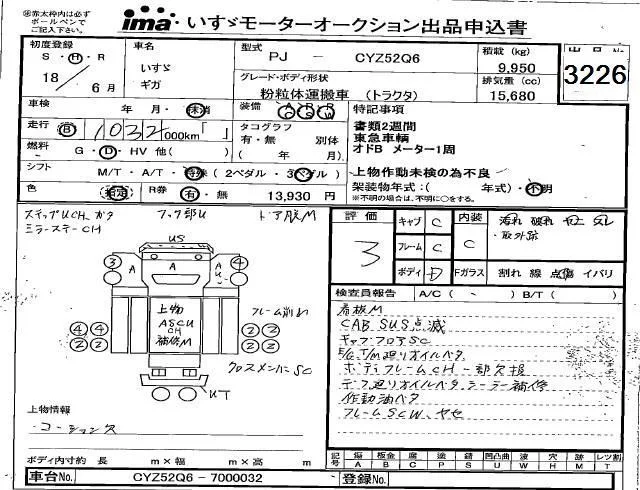 ※赤太枠内は必ず
ボールペンで
ご記入下さい。
ima いすゞモーターオークション出品申込書
初度登録
S・H・R
18 / 6月
車名
いすゞ
ギガ
型式
PJ － CYZ52Q6
グレード・ボディ形状
粉粒体運搬車 (トラクタ)
積載 (kg)
9,950
排気量 (cc)
15,680
3226
車検 年・月・抹消
装備
特記事項
走行 B 1032 000km「 」
タコグラフ
有・無 別体
( 年 月)
書類2週間
東急車輌
オドB メーター1周
上物作動未検の為不良
燃料 G・D・HV 他( )
シフト M/T・A/T・特殊(2ペダル・3ペダル)
架装物年式:( 年式)・不明
※不明の場合は、不明に○をする。
色 指定 R券 有・無 13,930 円
ステップUCH、ガタ フック部U ドア底M
ミラーステーCH
US
③ A A A U ④
④ ④ ② ②
② ② ② ②
上物
ASCU
CH
補修M
フレーム削れ
クロスメンバSC
UT
上物情報
評価
3
キャブ C
フレーム C
ボディ D
内装 C
Fガラス
汚れ 破れ
・取外跡
割れ 線 点傷 イバリ
検査員報告 A/C ( - ) B/T ( )
看板M
CAB、SUS点滅
キャブフロアSC
E/G、T/M廻りオイルベタ
ボディフレームCH 一部欠損
デフ廻りオイルベタ、シーラー補修
作動油ベタ
フレームSCW、ヤセ
ボディ内寸約 長 m×幅 m×高 m
記号 傷A 板金B 腐C 塗P 錆S 凹凸曲U 波W 穴H 跡M レツ割T
車台No. CYZ52Q6－7000032
登録No.